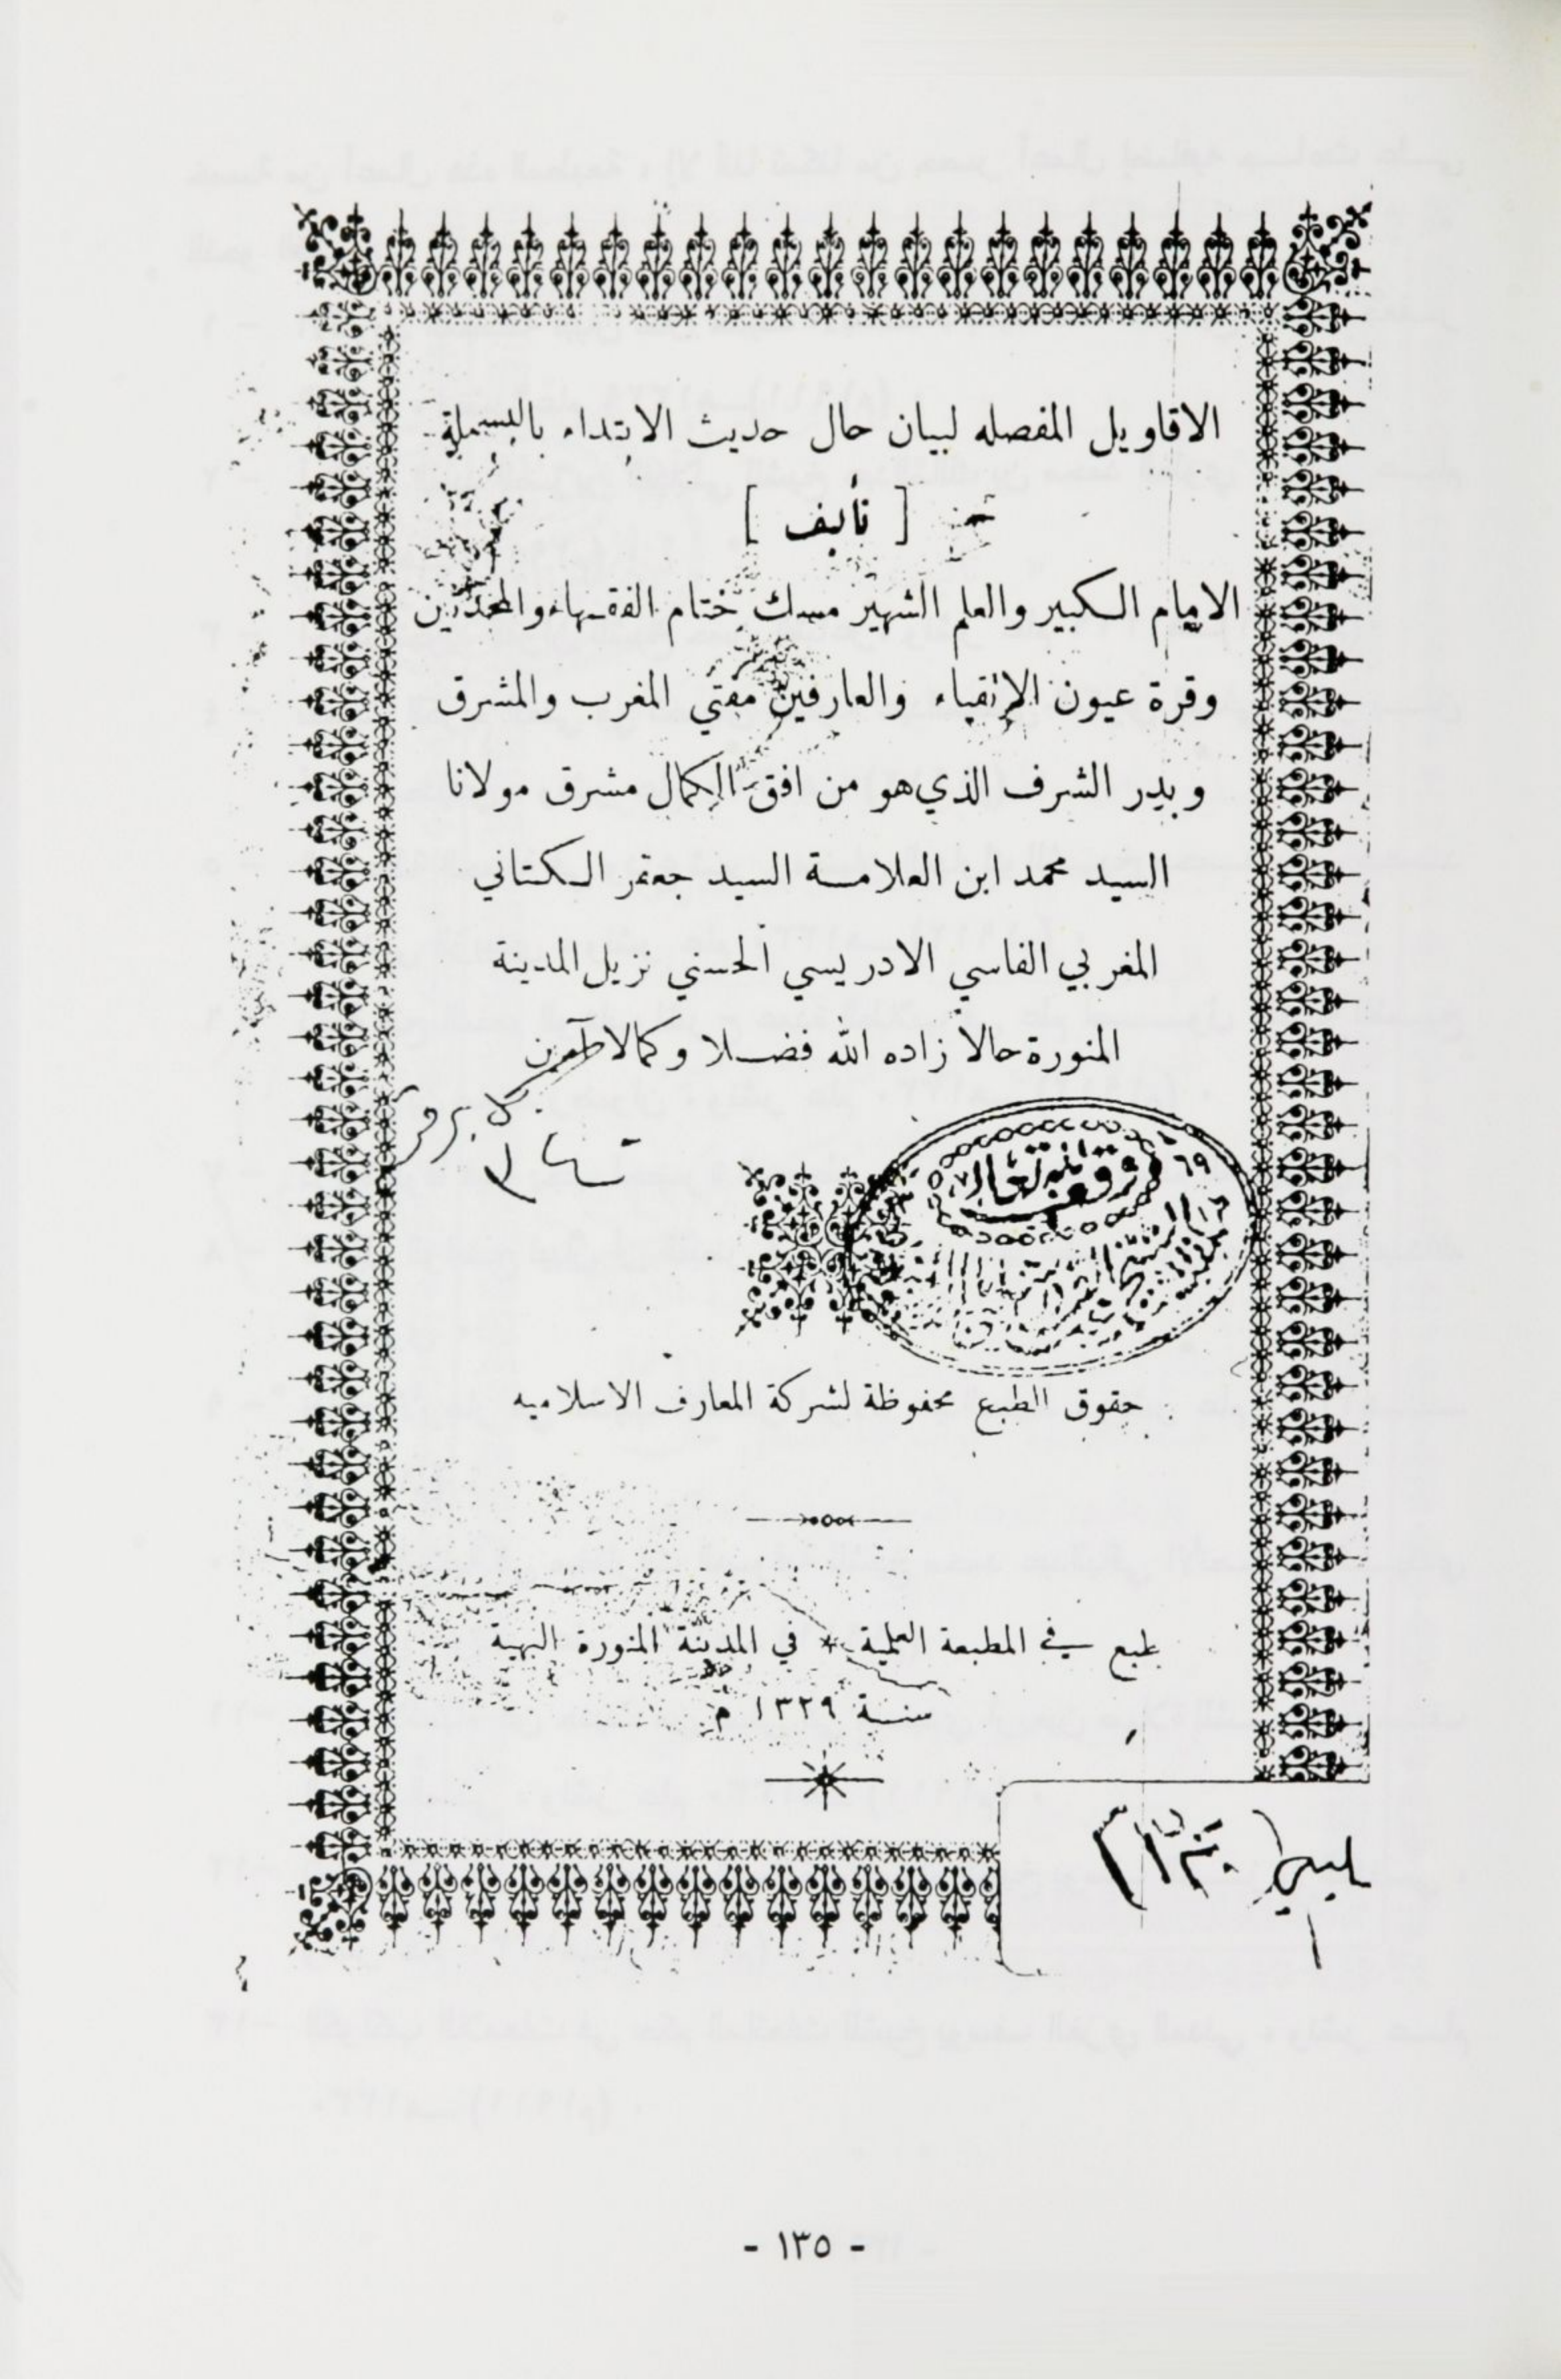 الاقاويل المفصله لبيان حال حديث الابتداء بالبسملة
[ تأليف ]
الامام الكبير والعلم الشهير مسك ختام الفقهاء والمحدثين
وقرة عيون الاتقياء والعارفين مفتي المغرب والمشرق
وبدر الشرف الذي هو من افق الكمال مشرق مولانا
السيد محمد ابن العلامة السيد جعفر الكتاني
المغربي الفاسي الادريسي الحسني نزيل المدينة
المنورة حالا زاده الله فضلا وكمالا آمين
حقوق الطبع محفوظة لشركة المعارف الاسلاميه
طبع في المطبعة العلمية * في المدينة المنورة البهية
سنة ١٣٢٩ م
- ١٣٥ -